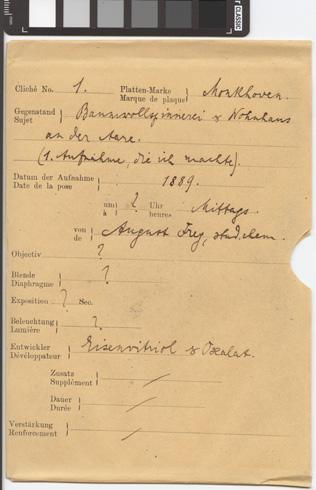 CLASSIC
Cliché No. 1. Platten-Marke Marque de plaque Monkhoven.
Gegenstand Sujet Baumwollspinnerei & Wohnhaus
an der Aare.
(1. Aufnahme, die ich machte).
Datum der Aufnahme Date de la pose 1889.
um à ? Uhr heures Mittags.
von de August Frey, stud. chem.
Objectiv ?
Blende Diaphragme ?
Exposition ? Sec.
Beleuchtung Lumière ?
Entwickler Dévéloppateur Eisenvitriol & Oxalat.
Zusatz Supplément /
Dauer Durée /
Verstärkung Renforcement /